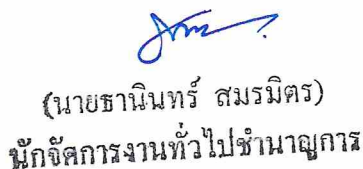 (นายธานินทร์ สมรมิตร)
นักจัดการงานทั่วไปชำนาญการ